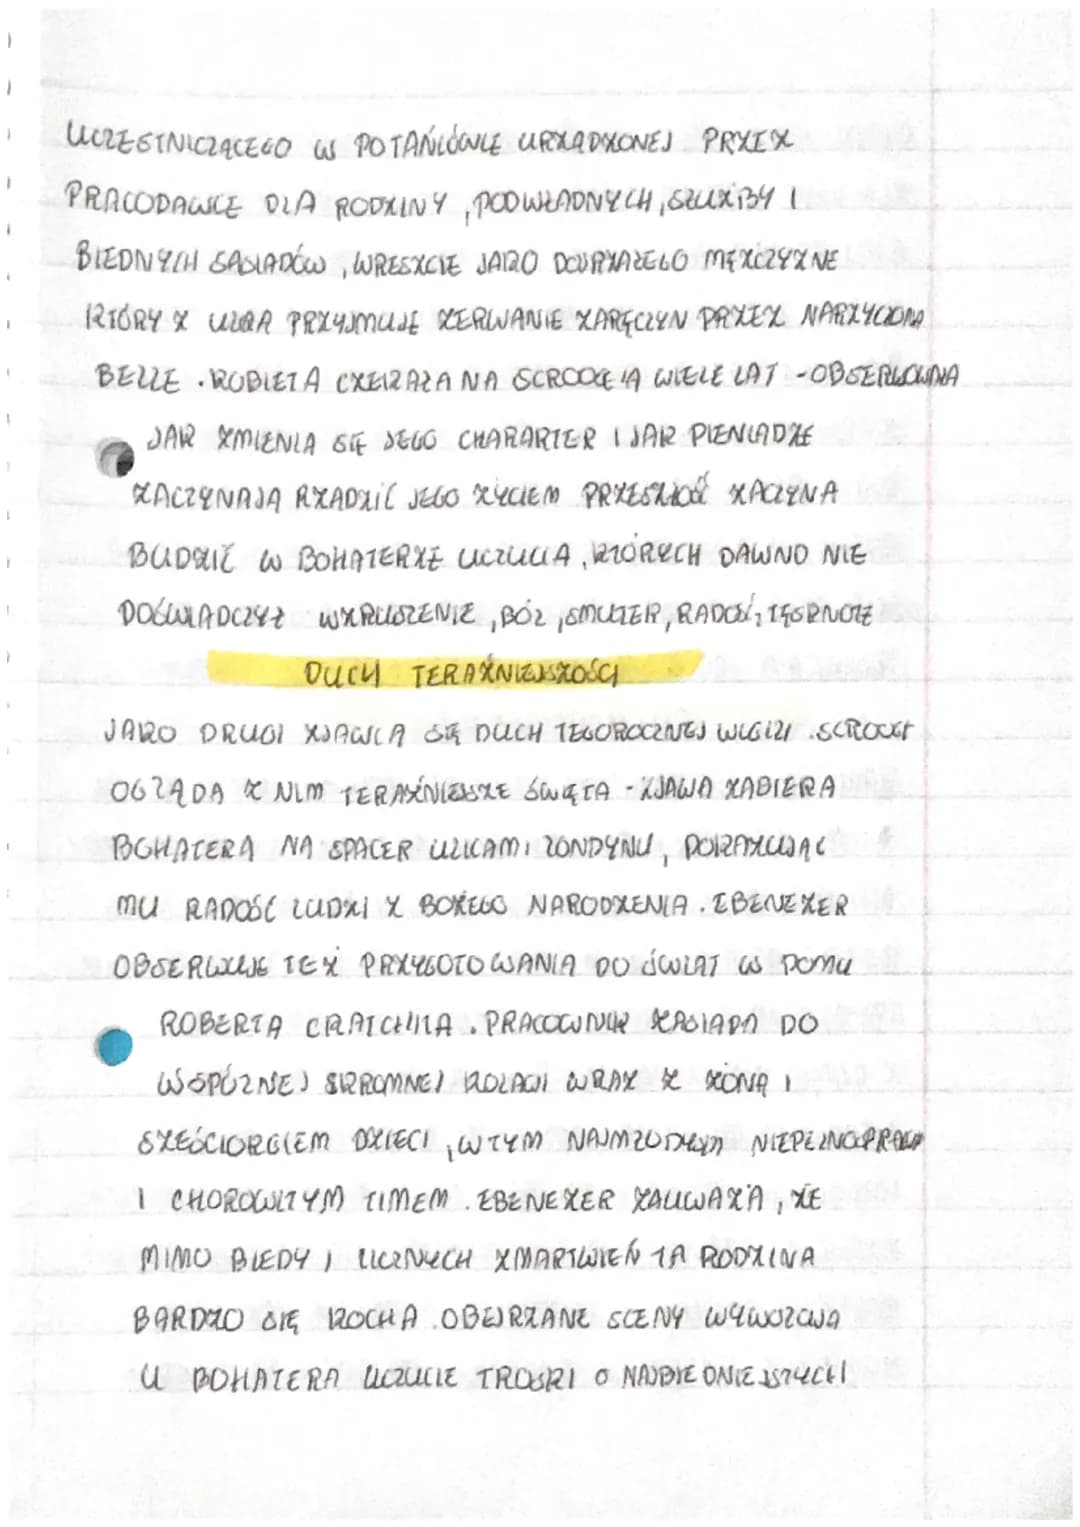 UCZESTNICZĄCEGO W POTAŃCÓWCE URZĄDZONEJ PRZEZ
PRACODAWCE DLA RODZINY, PODWŁADNYCH, SŁUŻBY I
BIEDNYCH SĄSIADÓW, WRESZCIE JAKO DOJRZAŁEGO MĘŻCZYZNE
KTÓRY Z ULGĄ PRZYJMUJE ZERWANIE ZARĘCZYN PRZEZ NARZYCZONA
BELLE. KOBIETA CZEKAŁA NA SCROOGE'A WIELE LAT - OBSERWOWAŁA
JAK ZMIENIA SIĘ JEGO CHARAKTER I JAK PIENIĄDZE
ZACZYNAJĄ RZĄDZIĆ JEGO ŻYCIEM PRZESZŁOŚĆ ZACZYNA
BUDZIĆ W BOHATERZE UCZUCIA, KTÓRYCH DAWNO NIE
DOŚWIADCZYŁ WZRUSZENIE, BÓL, SMUTEK, RADOŚĆ, TĘSKNOTĘ
DUCH TERAŹNIEJSZOŚCI
JAKO DRUGI ZJAWIA SIĘ DUCH TEGOROCZNEJ WIGILI. SCROOGE
OGLĄDA Z NIM TERAŹNIEJSZE ŚWIĘTA - ZJAWA ZABIERA
BOHATERA NA SPACER ULICAMI LONDYNU, POKAZUJĄC
MU RADOŚĆ LUDZI Z BOŻEGO NARODZENIA. EBENEZER
OBSERWUJE TEŻ PRZYGOTOWANIA DO ŚWIĄT W DOMU
ROBERTA CRATCHITA. PRACOWNIK ZASIADA DO
WSPÓLNEJ SKROMNEJ KOLACJI WRAZ Z ŻONĄ I
SZEŚCIORGIEM DZIECI, W TYM NAJMŁODSZYM
I CHOROWITYM TIMEM. EBENEZER ZAUWAŻA, ŻE
MIMO BIEDY I LICZNYCH ZMARTWIEŃ TA RODZINA
BARDZO SIĘ KOCHA. OBEJRZANE SCENY WYWOŁUJĄ
U BOHATERA UCZUCIE TROSKI O NAJBIEDNIEJSZYCH